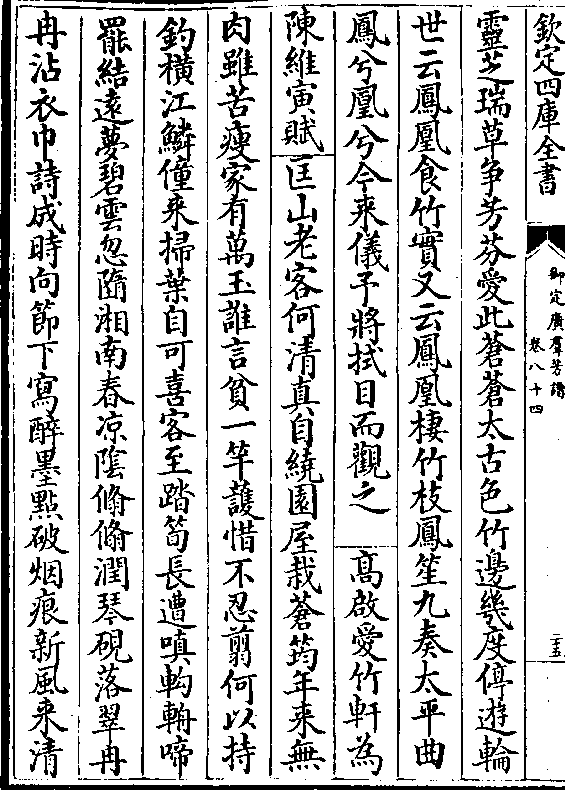 欽定四庫全書
御定廣羣芳譜
卷八十四
二五
靈芝瑞草爭芳芬愛此蒼蒼太古色竹邊幾度停遊輪
世云鳳凰食竹實又云鳳凰棲竹枝鳳笙九奏太平曲
鳳兮凰兮今來儀予將拭目而觀之　高啟愛竹軒為
陳維寅賦　匡山老客何清真自繞園屋栽蒼筠年來無
肉雖苦瘦家有萬玉誰言貧一竿護惜不忍翦何以持
釣橫江鱗僮來掃葉自可喜客至踏筍長遭嗔鉤輈啼
罷結遠夢碧雲忽隨湘南春凉陰翛翛潤琴硯落翠冉
冉沾衣巾詩成時向節下寫醉墨點破烟痕新風來清